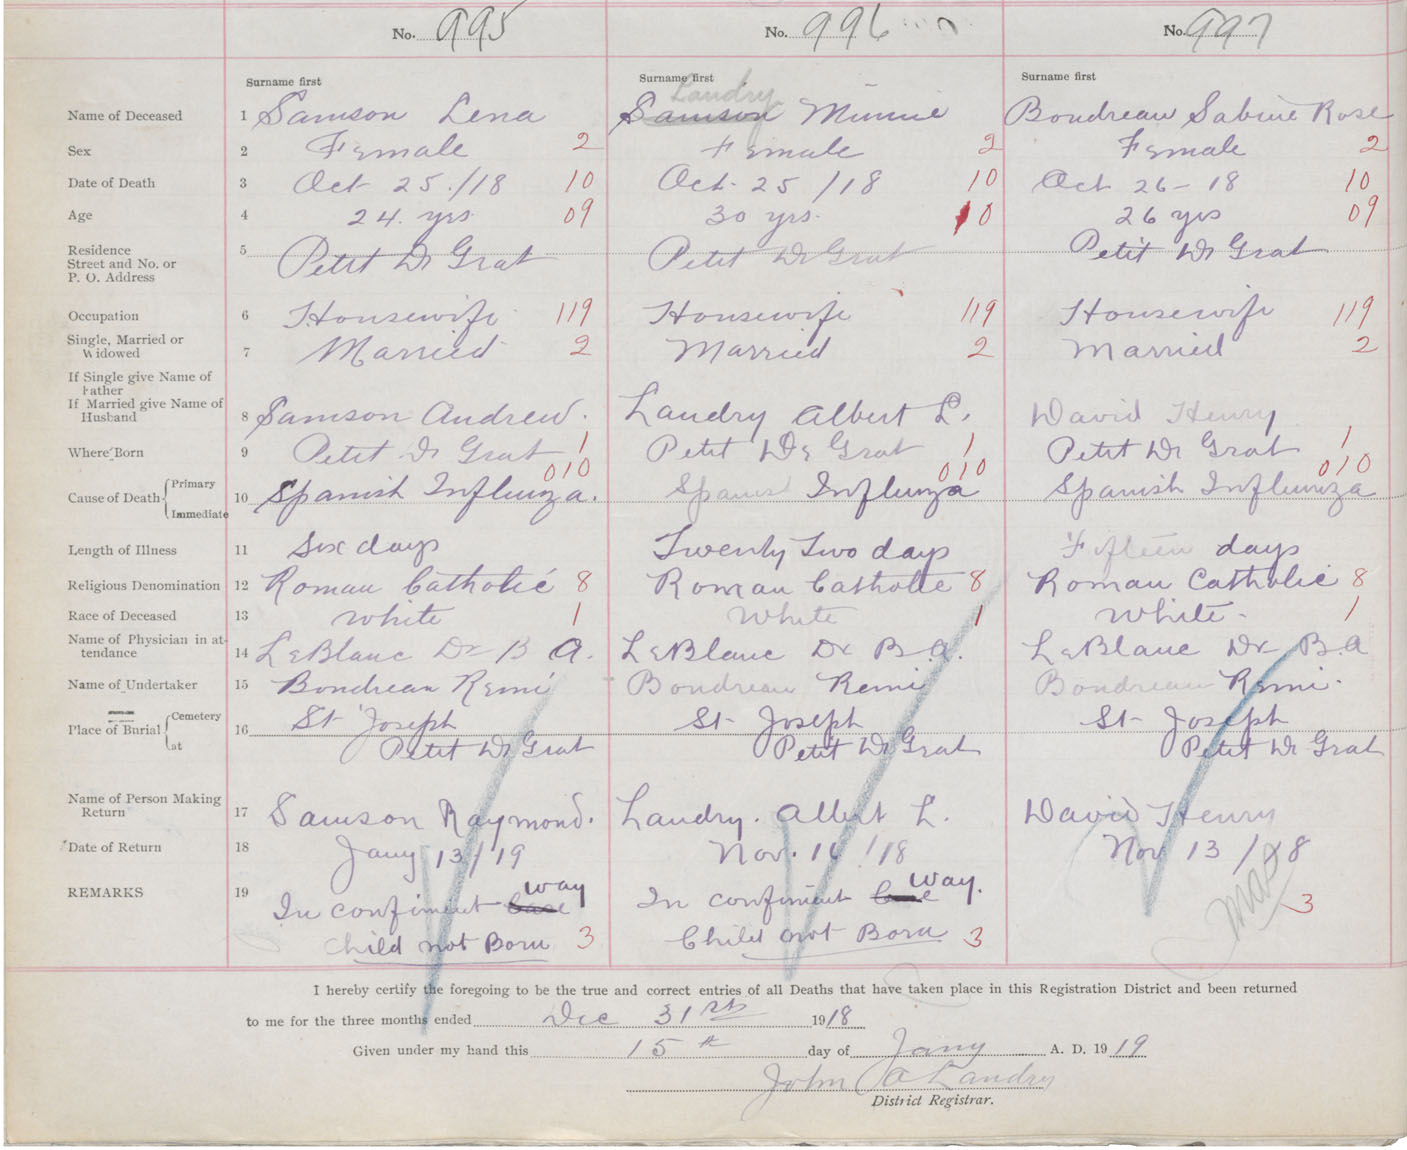 No. 995 No. 996 No. 997
Surname first Surname first Surname first
Landry
Name of Deceased 1 Samson Lena Samson Minnie Boudreau Sabine Rose
Sex 2 Female 2 Female 2 Female 2
Date of Death 3 Oct 25/18 10 Oct. 25/18 10 Oct 26-18 10
Age 4 24 yrs 09 30 yrs. 10 26 yrs 09
Residence
Street and No. or 5 Petit De Grat Petit De Grat Petit De Grat
P. O. Address
Occupation 6 Housewife 119 Housewife 119 Housewife 119
Single, Married or
Widowed 7 Married 2 Married 2 Married 2
If Single give Name of
Father
If Married give Name of
Husband 8 Samson Andrew. Landry Albert L. David Henry
Where Born 9 Petit De Grat 1 Petit De Grat 1 Petit De Grat 1
010 010 010
Cause of Death { Primary
Immediate 10 Spanish Influenza. Spanish Influenza Spanish Influenza
Length of Illness 11 Six days Twenty Two days Fifteen days
Religious Denomination 12 Roman Catholic 8 Roman Catholic 8 Roman Catholic 8
Race of Deceased 13 White 1 White 1 White 1
Name of Physician in at-
tendance 14 LeBlanc Dr B A. LeBlanc Dr B.A. LeBlanc Dr B.A
Name of Undertaker 15 Boudreau Remi Boudreau Remi Boudreau Remi.
Place of Burial { Cemetery 16 St Joseph St Joseph St Joseph
at Petit De Grat Petit De Grat Petit De Grat
Name of Person Making
Return 17 Samson Raymond. Landry. Albert L. David Henry
Date of Return 18 Jany 13/19 Nov. 16/18 Nov 13/18
way way.
REMARKS 19 In confiment Case In confiment Case
Child not Born 3 Child not Born 3 3
I hereby certify the foregoing to be the true and correct entries of all Deaths that have taken place in this Registration District and been returned
to me for the three months ended Dec 31st 1918
Given under my hand this 15th day of Jany A. D. 1919
John A Landry
District Registrar.